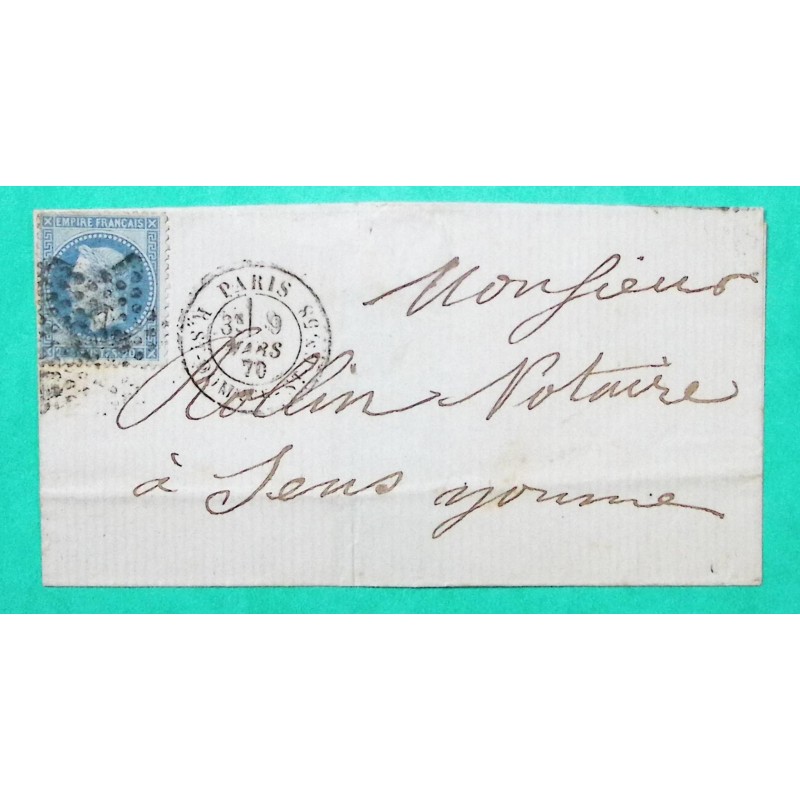 EMPIRE FRANÇAIS
PARIS
9
MARS
70
Monsieur
Rollin Notaire
à Sens yonne